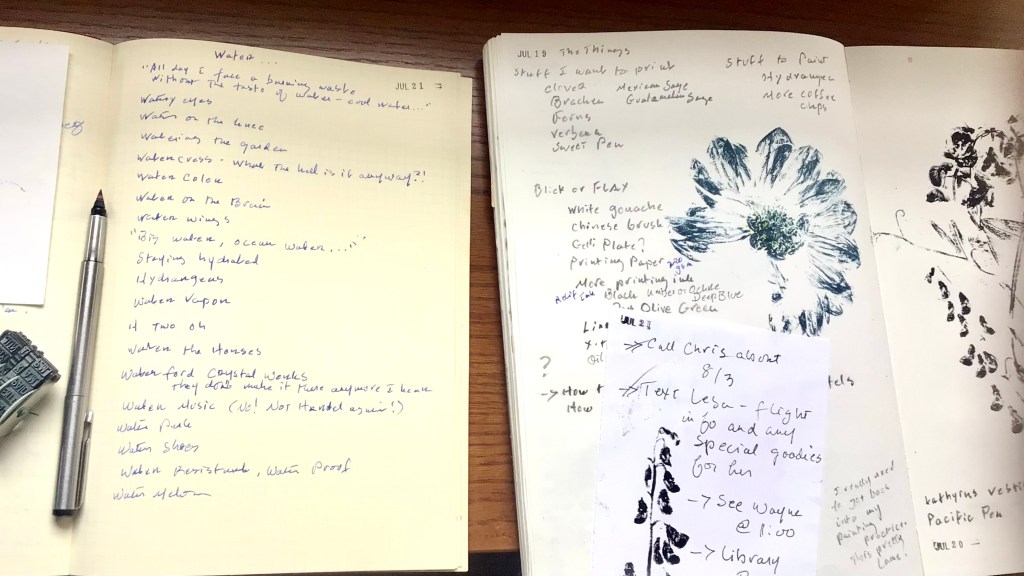 Water...
JUL 21
"All day I face a burning waste
Without the taste of water - cool water..."
Watery eyes
Water on the knee
Watering the garden
Watercress - What the hell is it anyway?!
Water Color
Water on the Brain
Water wings
"Big water, ocean water....."
Staying hydrated
Hydrangeas
Water Vapor
H Two Oh
Water the Horses
Waterford Crystal Works
they don't make it there anymore I hear
Water Music (No! Not Handel again!)
Water Park
Water Shoes
Water Resistant, Water Proof
Water Melon
JUL 19 The Things
Stuff I want to print
clover Mexican Sage
Bracken Guatemalan Sage
Ferns
verbena
Sweet Pea
Stuff to Paint
Hydrangea
More coffee
cups
Blick or FLAX
White gouache
Chinese brush
Gelli Plate?
Printing Paper
More printing ink
Black Umber or Ochre
Deep Blue
Olive Green
?
-> How
How
JUL 21
-> Call Chris about
8/3
-> Text Lesa - flight
info and any
special goodies
for her
-> See Wayne
@ 1:00
-> Library
I really need
to get back
into my
painting
practice.
This pretty
lame!
Pacific Pea
JUL 20